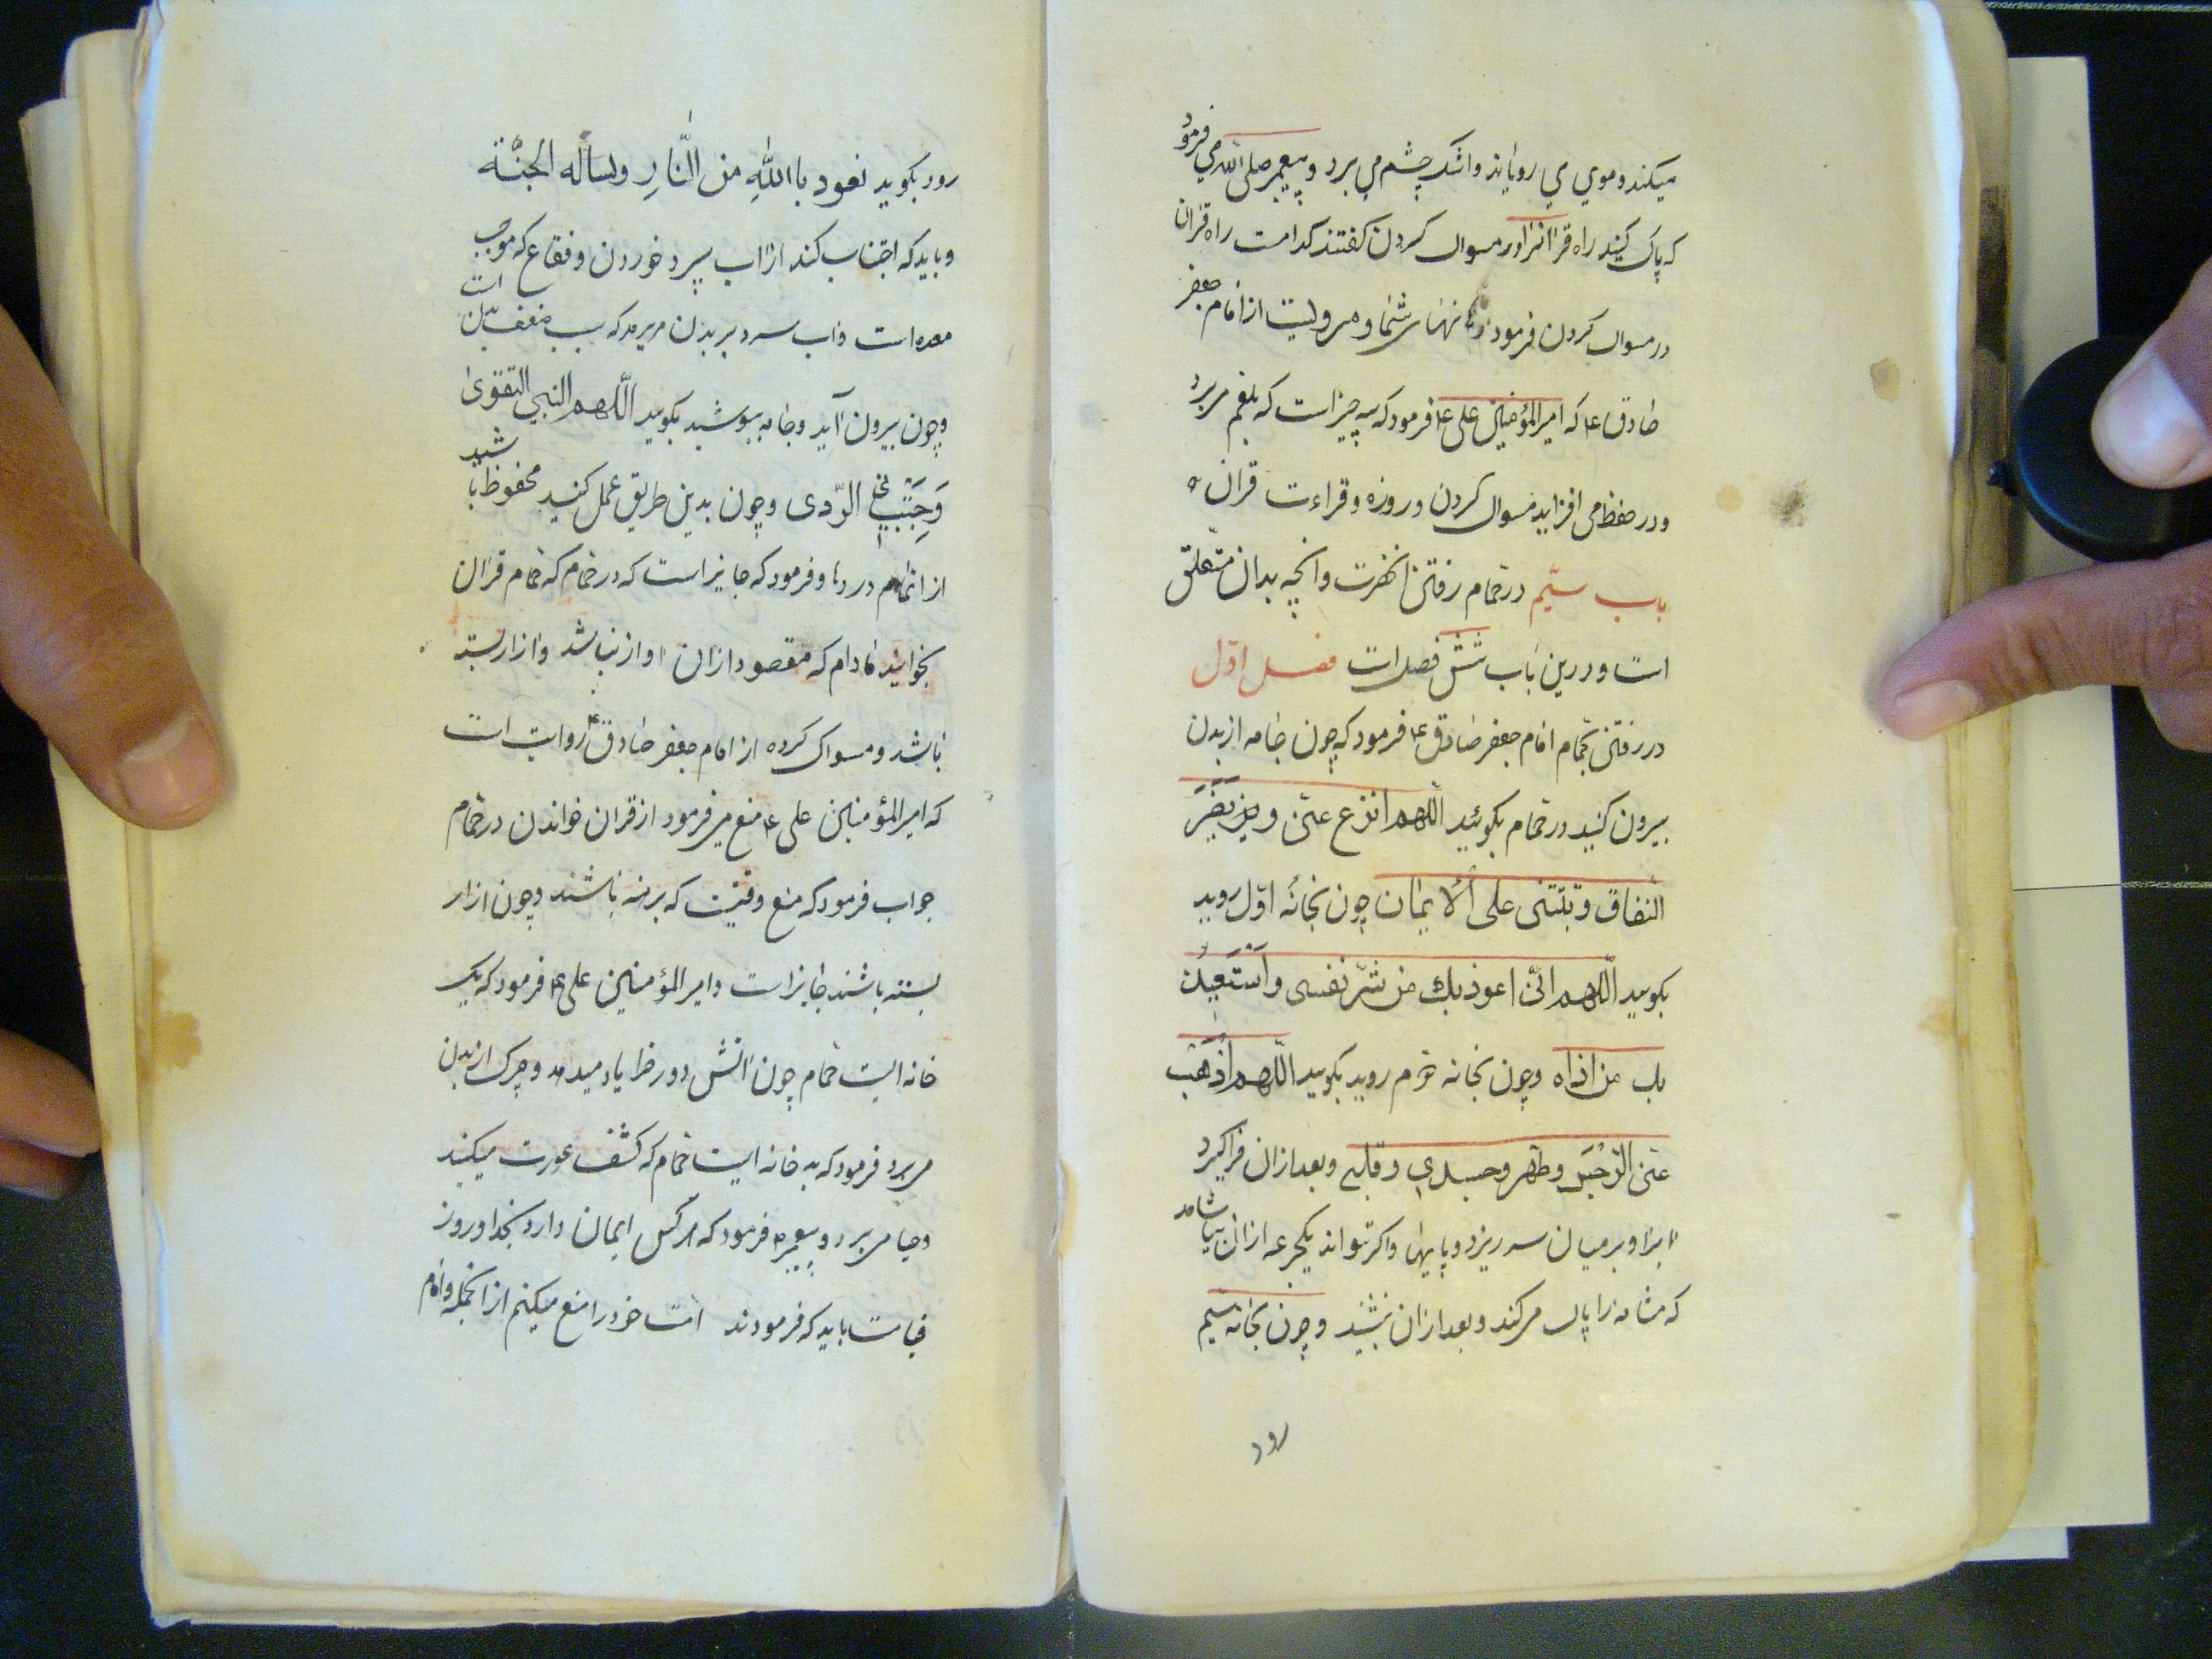 میکند و موی می رویاند و اشک چشم می برد و پیغمبر صلی الله می فرمود
که پاک کنید راه قرانرا و بمسواک کردن کفتند کدامست راه قران
در مسواک کردن فرمود دهانهای شما و مرویست از امام جعفر
صادق ع که امیر المؤمنین علی ع فرمود که سه چیز است که بلغم می برد
و در حفظ می افزاید مسواک کردن و روزه و قراءت قران
باب سیّم در حمام رفتن انحضرت و انچه بدان متعلق
است و درین باب شش فصل است فصل اوّل
در رفتن بحمام امام جعفر صادق ع فرمود که چون جامه از بدن
بیرون کنید در حمام بکوئید اللّهم انزع عنّی
النفاق و ثبّتنی علی الایمان چون بخانه اوّل روید
بکویید اللّهم انّی اعوذ بك من شرّ نفسی و استعیذ
بك من اذاه و چون بخانه دوّم روید بکویید اللّهم اذهب
عنّی الرّجس و طهر و جسدی و قلبی و بعد ازان فراکیرد
ابرا و بر میان سر ریزد و پایها و اکر تواند یکجرعه ازان بیاشامد
که مثانه را پاک می کند و بعد ازان بنشیند و چون بخانه سیم
رود
رود بکوید نعوذ باالله من النّارِ و نساله الجنّة
و باید که اجتناب کند از اب سرد خوردن و فقاع که موجب
معده است و اب سرد بر بدن مریزد که سبب ضعف بدن است
و چون بیرون آید و جامه بپوشید بکویید اللّهم البسنی التقوی
وَجَنِّبنی الرّدی و چون بدین طریق عمل کنید محفوظ باشید
از انمام دردها و فرمود که جایز است که در حمام که تمام قران
بخوانید مادام که مقصود ازان اواز نباشد و ازار بسته
باشد و مسواک کرده از امام جعفر صادق ع روایت است
که امیر المؤمنین علی ع منع میفرمود از قران خواندن در حمام
جواب فرمود که منع وقتیست که برهنه باشند و چون ازار
بسته باشند جایز است و امیر المؤمنین علی ع فرمود که نیک
خانه ایست حمام چون اتش دوزخ را یاد میدهد و چرک از بدن
می برد و فرمود که بد خانه ایست حمام که کشف عورت میکنید
و حیا می برد و پیغمبر ص فرمود که هر کس ایمان دارد بخدا و روز
قیامت باید که فرمودند امت خود را منع میکنم از انجمله و امام